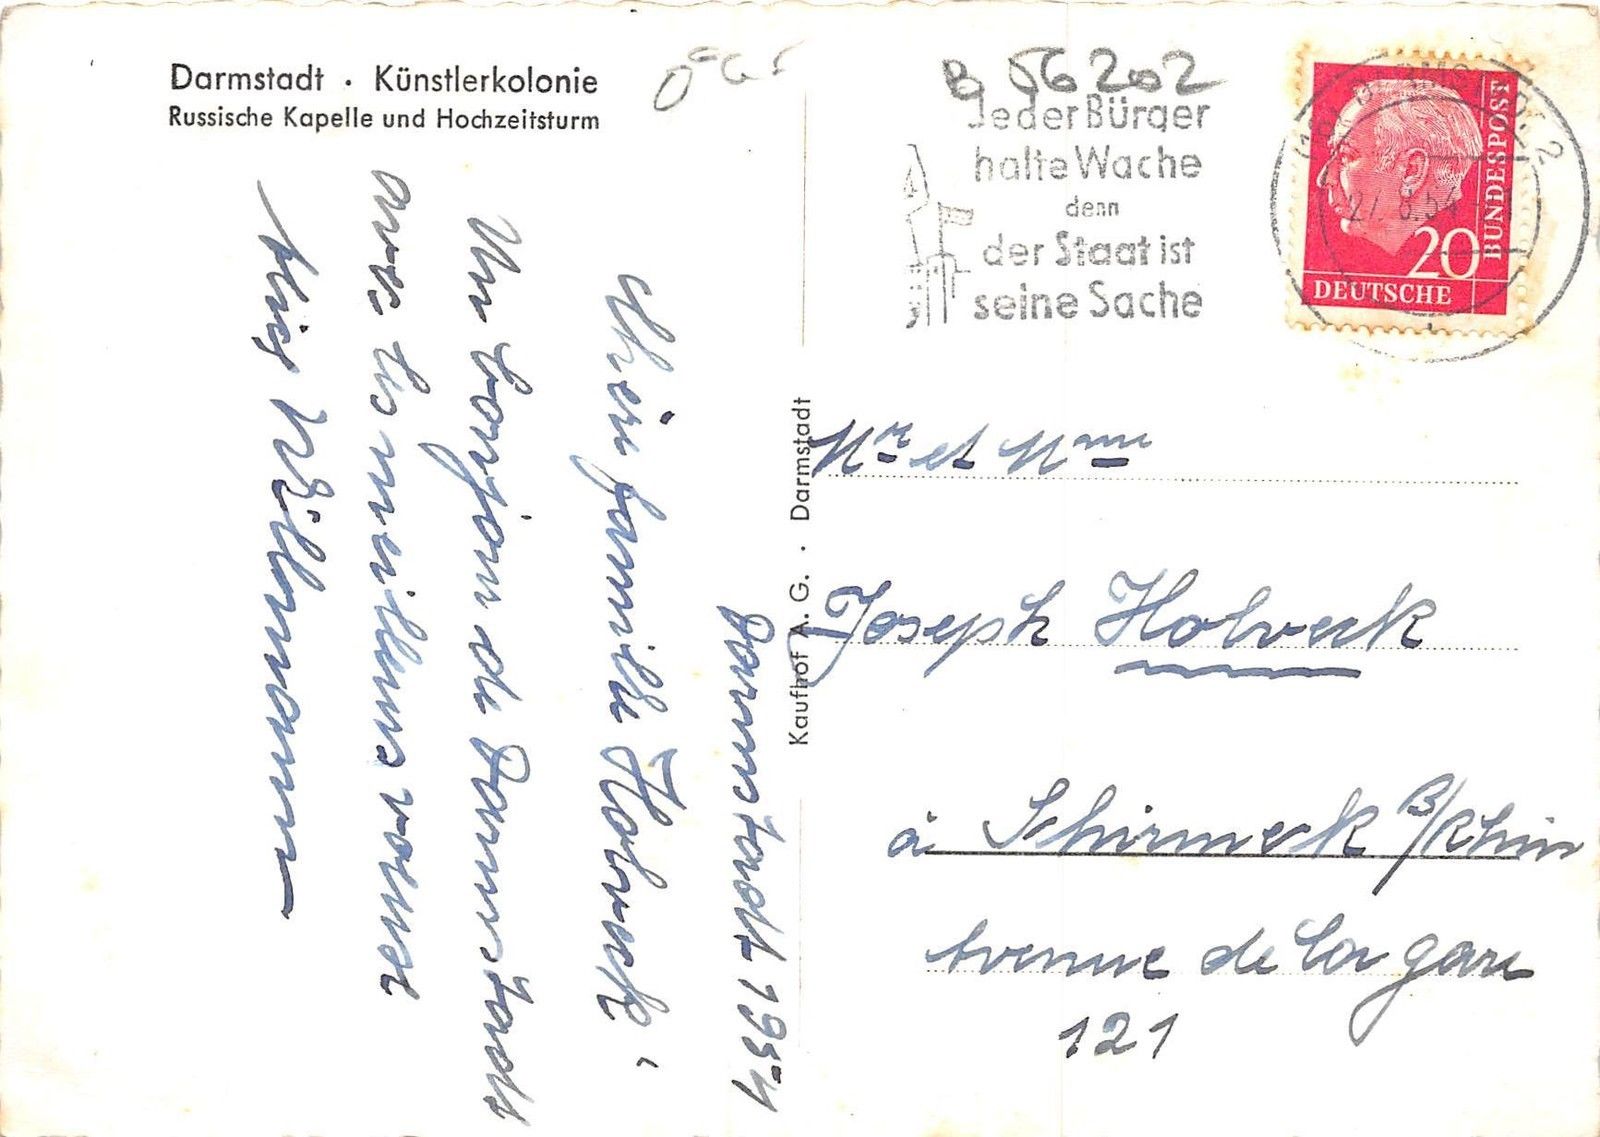 Darmstadt · Künstlerkolonie
Russische Kapelle und Hochzeitsturm
B 56202
Jeder Bürger
halte Wache
denn
der Staat ist
seine Sache
20
DEUTSCHE
BUNDESPOST
Kaufhof A. G. · Darmstadt
Darmstadt 1954
Chère famille Holveck,
Un bonjour de Darmstadt
avec les meilleurs voeux
Mr et Mme
Joseph Holveck
à Schirmeck B/Rhin
Avenue de la gare
121